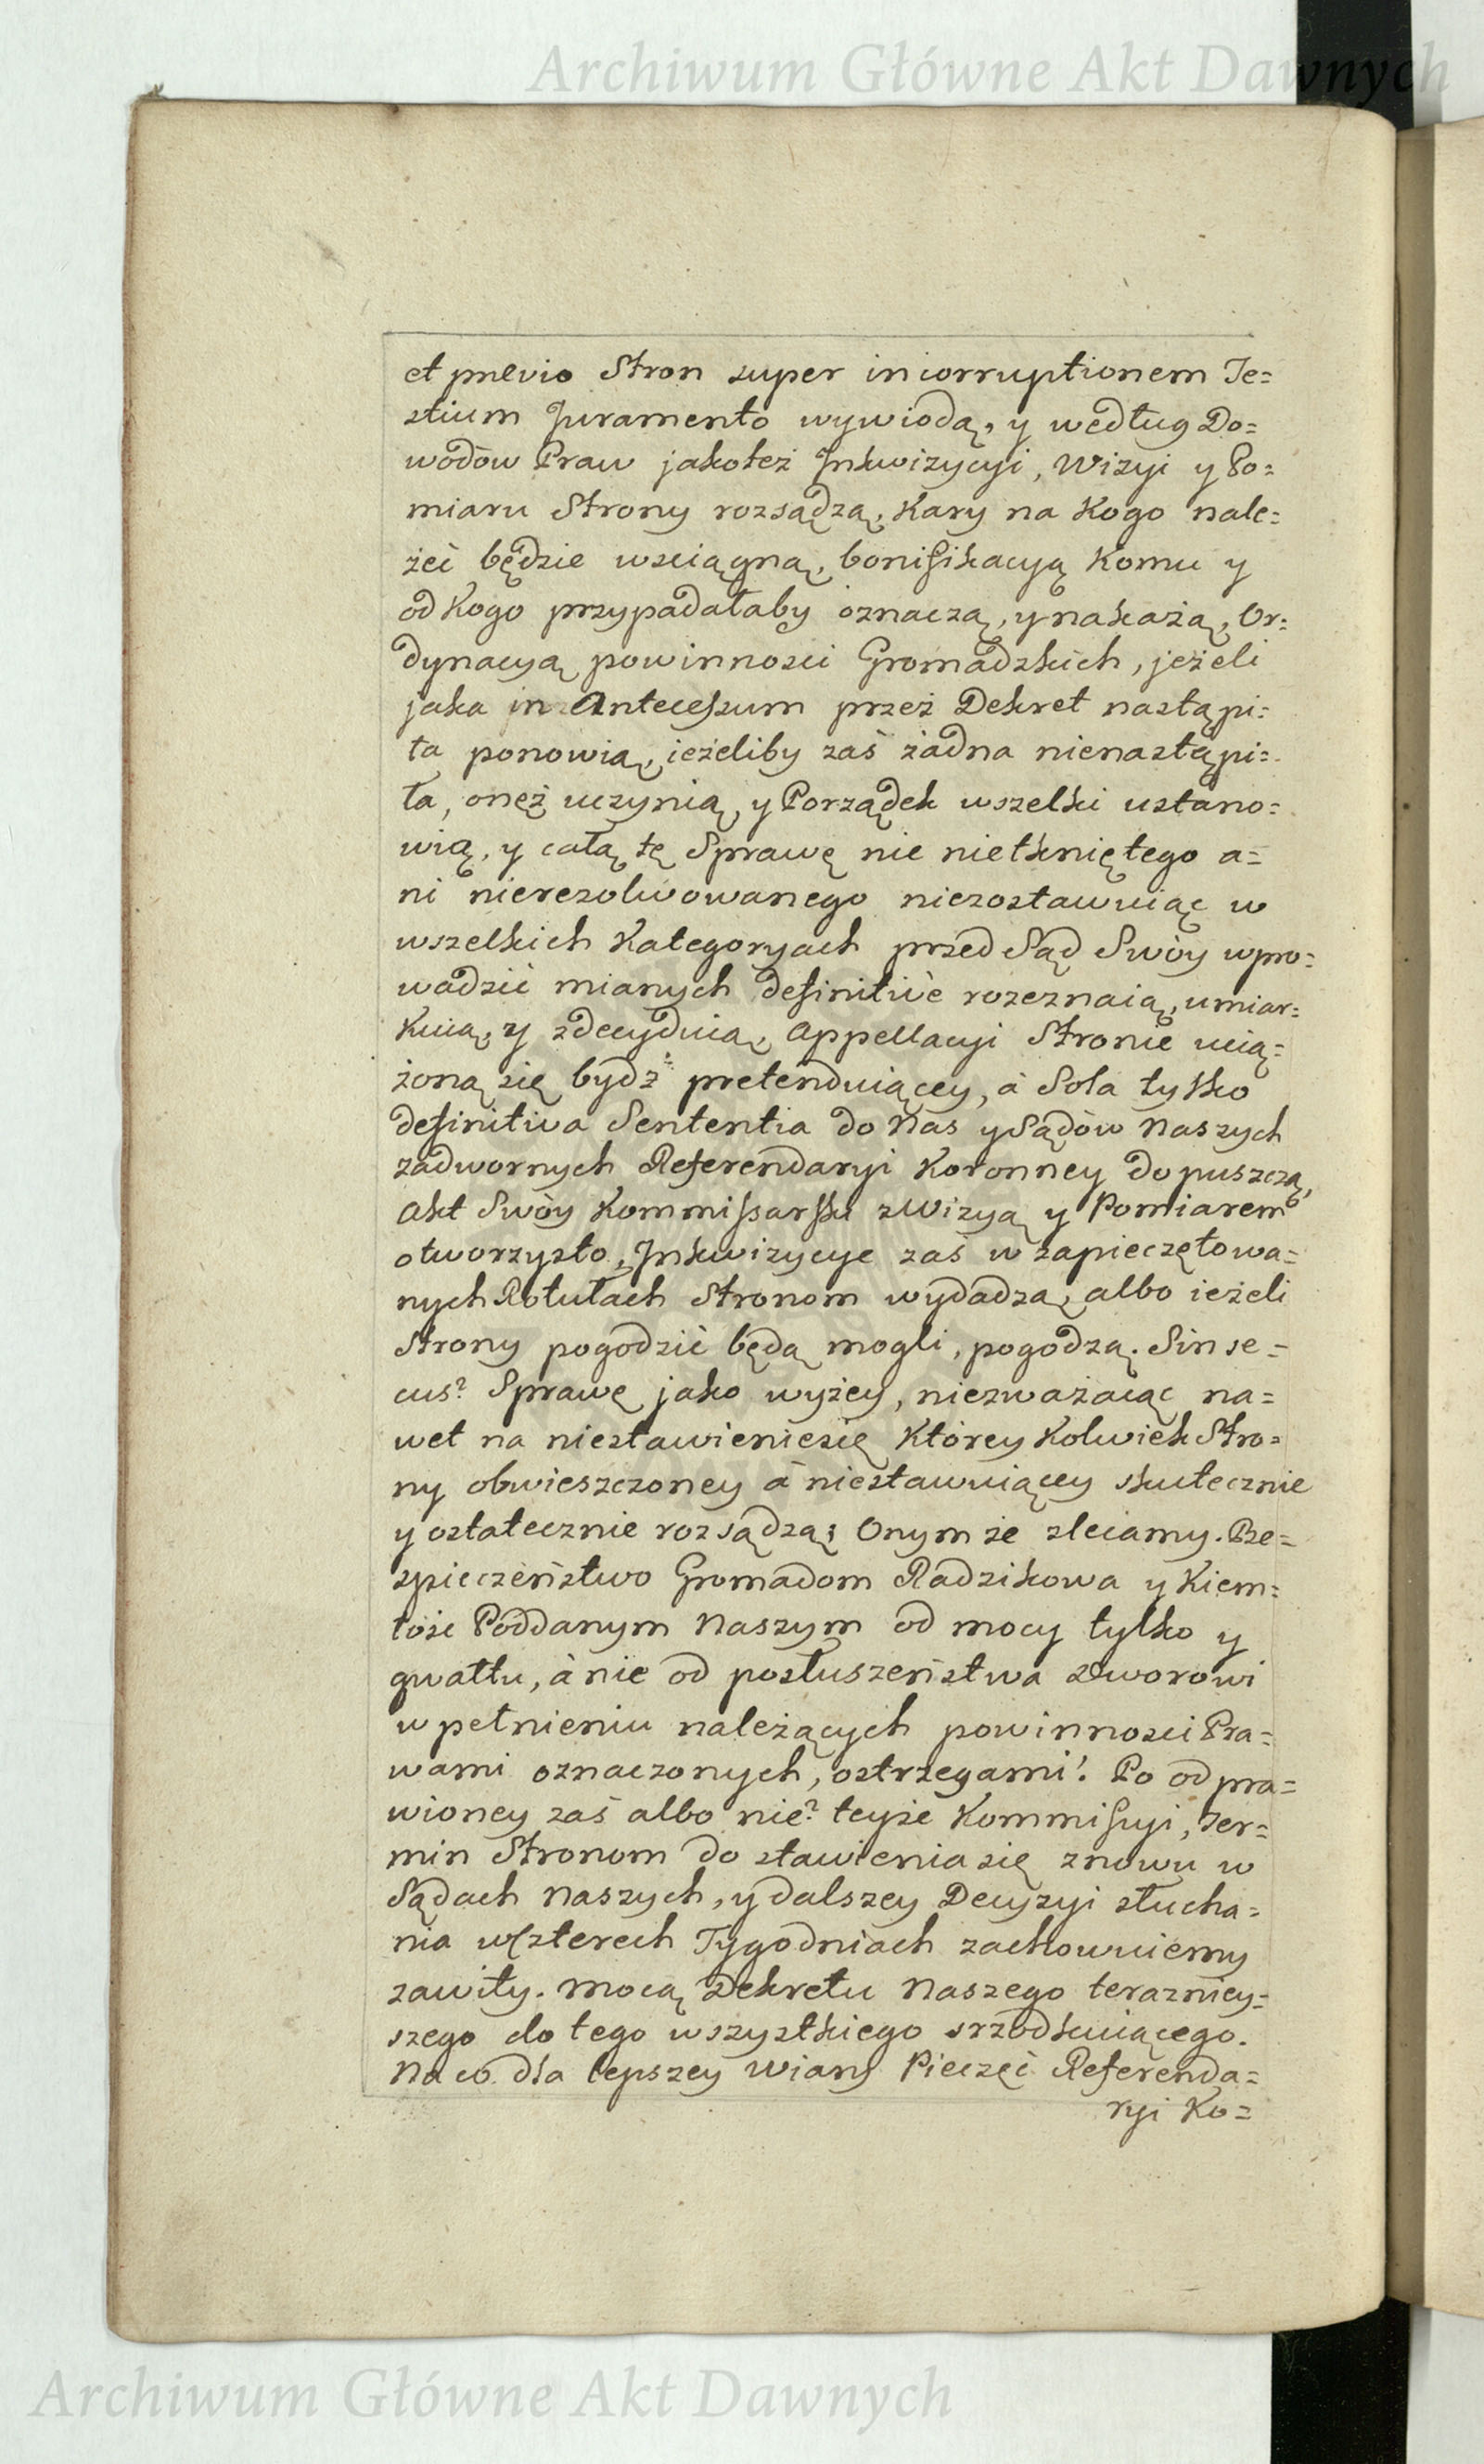 Archiwum Główne Akt Dawnych
et prævio Stron super incorruptionem Te=
stium Juramento wywiodą, y według Do=
wodów Praw jakoteż Jnkwizycyi, Wizyi y Po=
miaru Strony rozsądzą, Kary na Kogo nale=
żeć będzie wsciągną, bonifikacyą Komu y
od Kogo przypadałaby oznaczą, y nakażą, Or=
dynacyą powinnosci Gromadzkich, jeżeli
jaka in Antecessum przez Dekret nastąpi=
ła ponowią, ieżeliby zaś żadna nienastąpi=
ła, onęż uczynią, y Porządek wszelki ustano=
wią, y całą tę Sprawę nic nietkniętego a=
ni nierezolwowanego niezostawuiąc w
wszelkich Kategoryach przed Sąd Swóy wpro=
wadzić mianych definitivè rozeznaią, umiar=
Kuią, y zdecyduią, Appellacyi Stronie ucią=
żoną się bydź pretenduiącey, à Sola tylko
definitiva Sententia do Nas y Sądów Naszych
zadwornych Referendaryi Koronney dopuszczą,
Akt Swóy Kommissarski z Wizyą y Pomiarem
otworzysto, Jnkwizycye zaś w zapieczętowa=
nych Rotułach Stronom wydadzą, albo ieżeli
Strony pogodzić będą mogli, pogodzą. Sin se=
cus? Sprawę jako wyżey, niezważaiąc na=
wet na niestawieniesię Którey Kolwiek Stro=
ny obwieszczoney à niestawuiącey skutecznie
y ostatecznie rozsądzą; Onym że zleciamy. Be=
spieczeństwo Gromadom Radzikowa y Kiem=
łoże Poddanym Naszym od mocy tylko y
gwałtu, à nie od posłuszeństwa Dworowi
w pełnieniu należących powinnosci Pra=
wami oznaczonych, ostrzegami! Po odpra=
wioney zaś albo nie? teyże Kommissyi, Ter=
min Stronom do stawienia się znowu w
Sądach Naszych, y dalszey Decyzyi słucha=
nia w czterech Tygodniach zachowuiemy
zawity. Mocą Dekretu Naszego terazniey=
szego do tego wszystkiego srzodkuiącego.
Na co dla lepszey Wiary Pieczęć Referenda=
ryi Ko=
Archiwum Główne Akt Dawnych